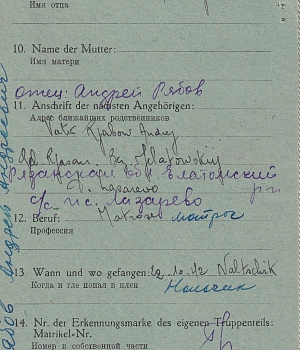 Имя отца
10. Name der Mutter:
Имя матери
отец: Андрей Рябов
11. Anschrift der nächsten Angehörigen:
Адрес ближайших родственников
Vater Rjabow Andrej
Рязанская обл Елатомский
р-н
с/с п.с. Лазарево
12. Beruf: Matrose матрос
Профессия
13 Wann und wo gefangen: 29.10.42 Naltschik
Когда и где попал в плен Нальчик
14. Nr. der Erkennungsmarke des eigenen Truppenteils:
Matrikel-Nr.
Номер в собственной части.
Рябов Андрей Андреевич